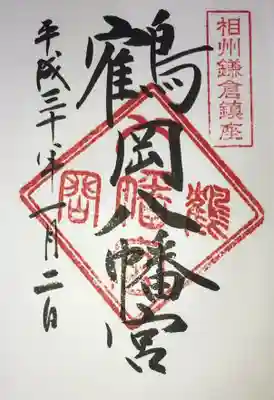 相州鎌倉鎮座
鶴岡八幡宮
平成三十年一月二日